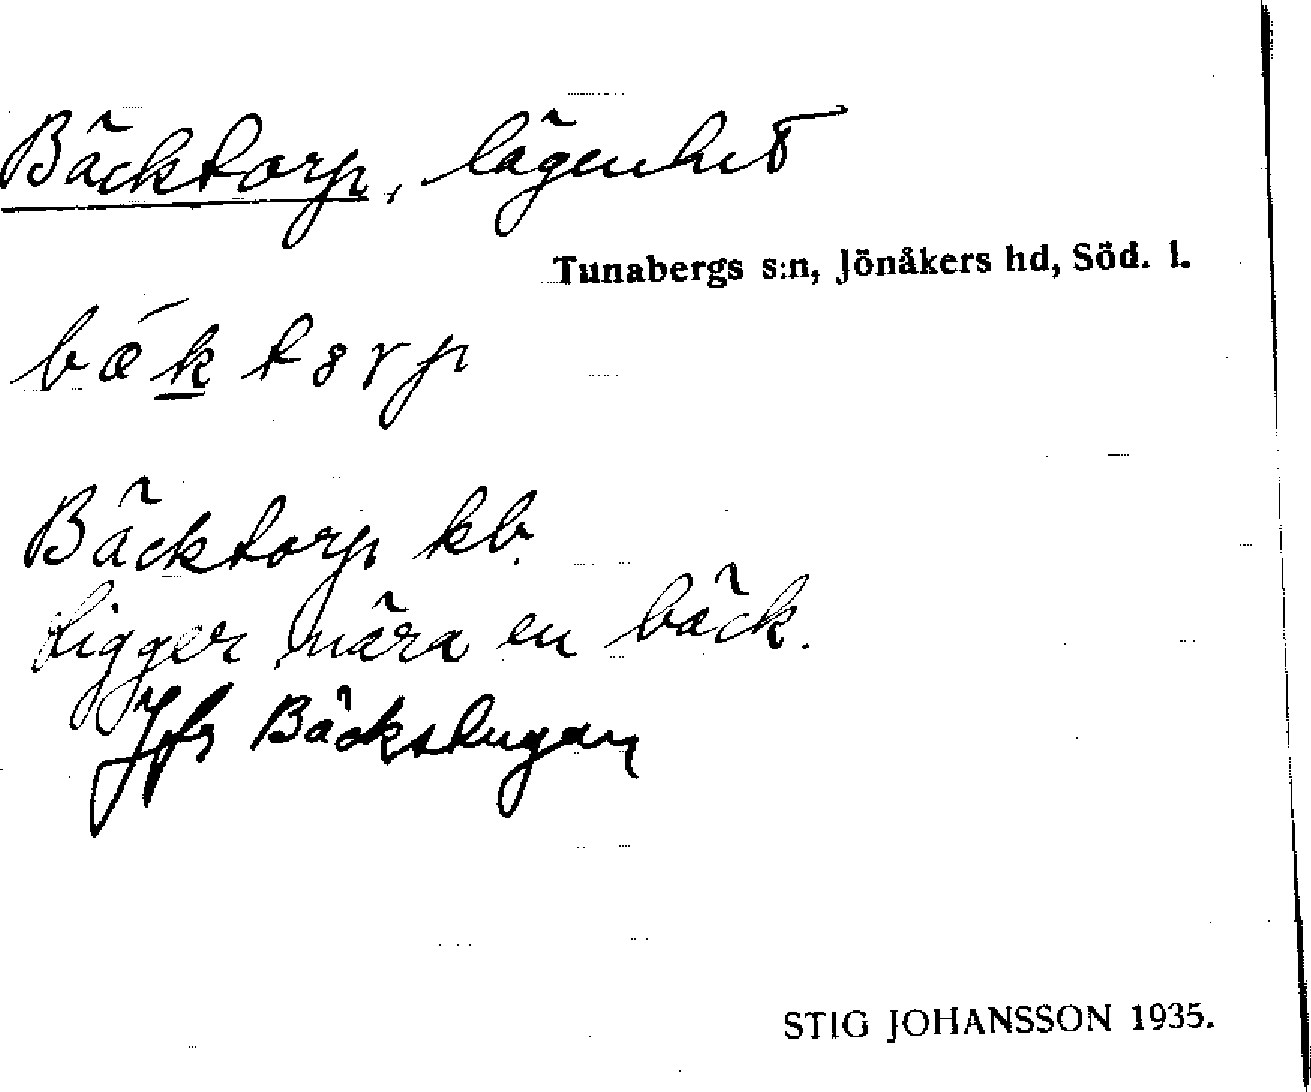 Bäcktorp, lägenhet
Tunabergs s:n, Jönåkers hd, Söd. l.
bæ´k t8rp
Bäcktorp kb.
ligger nära en bäck.
Jfr Bäckstugan
STIG JOHANSSON 1935.